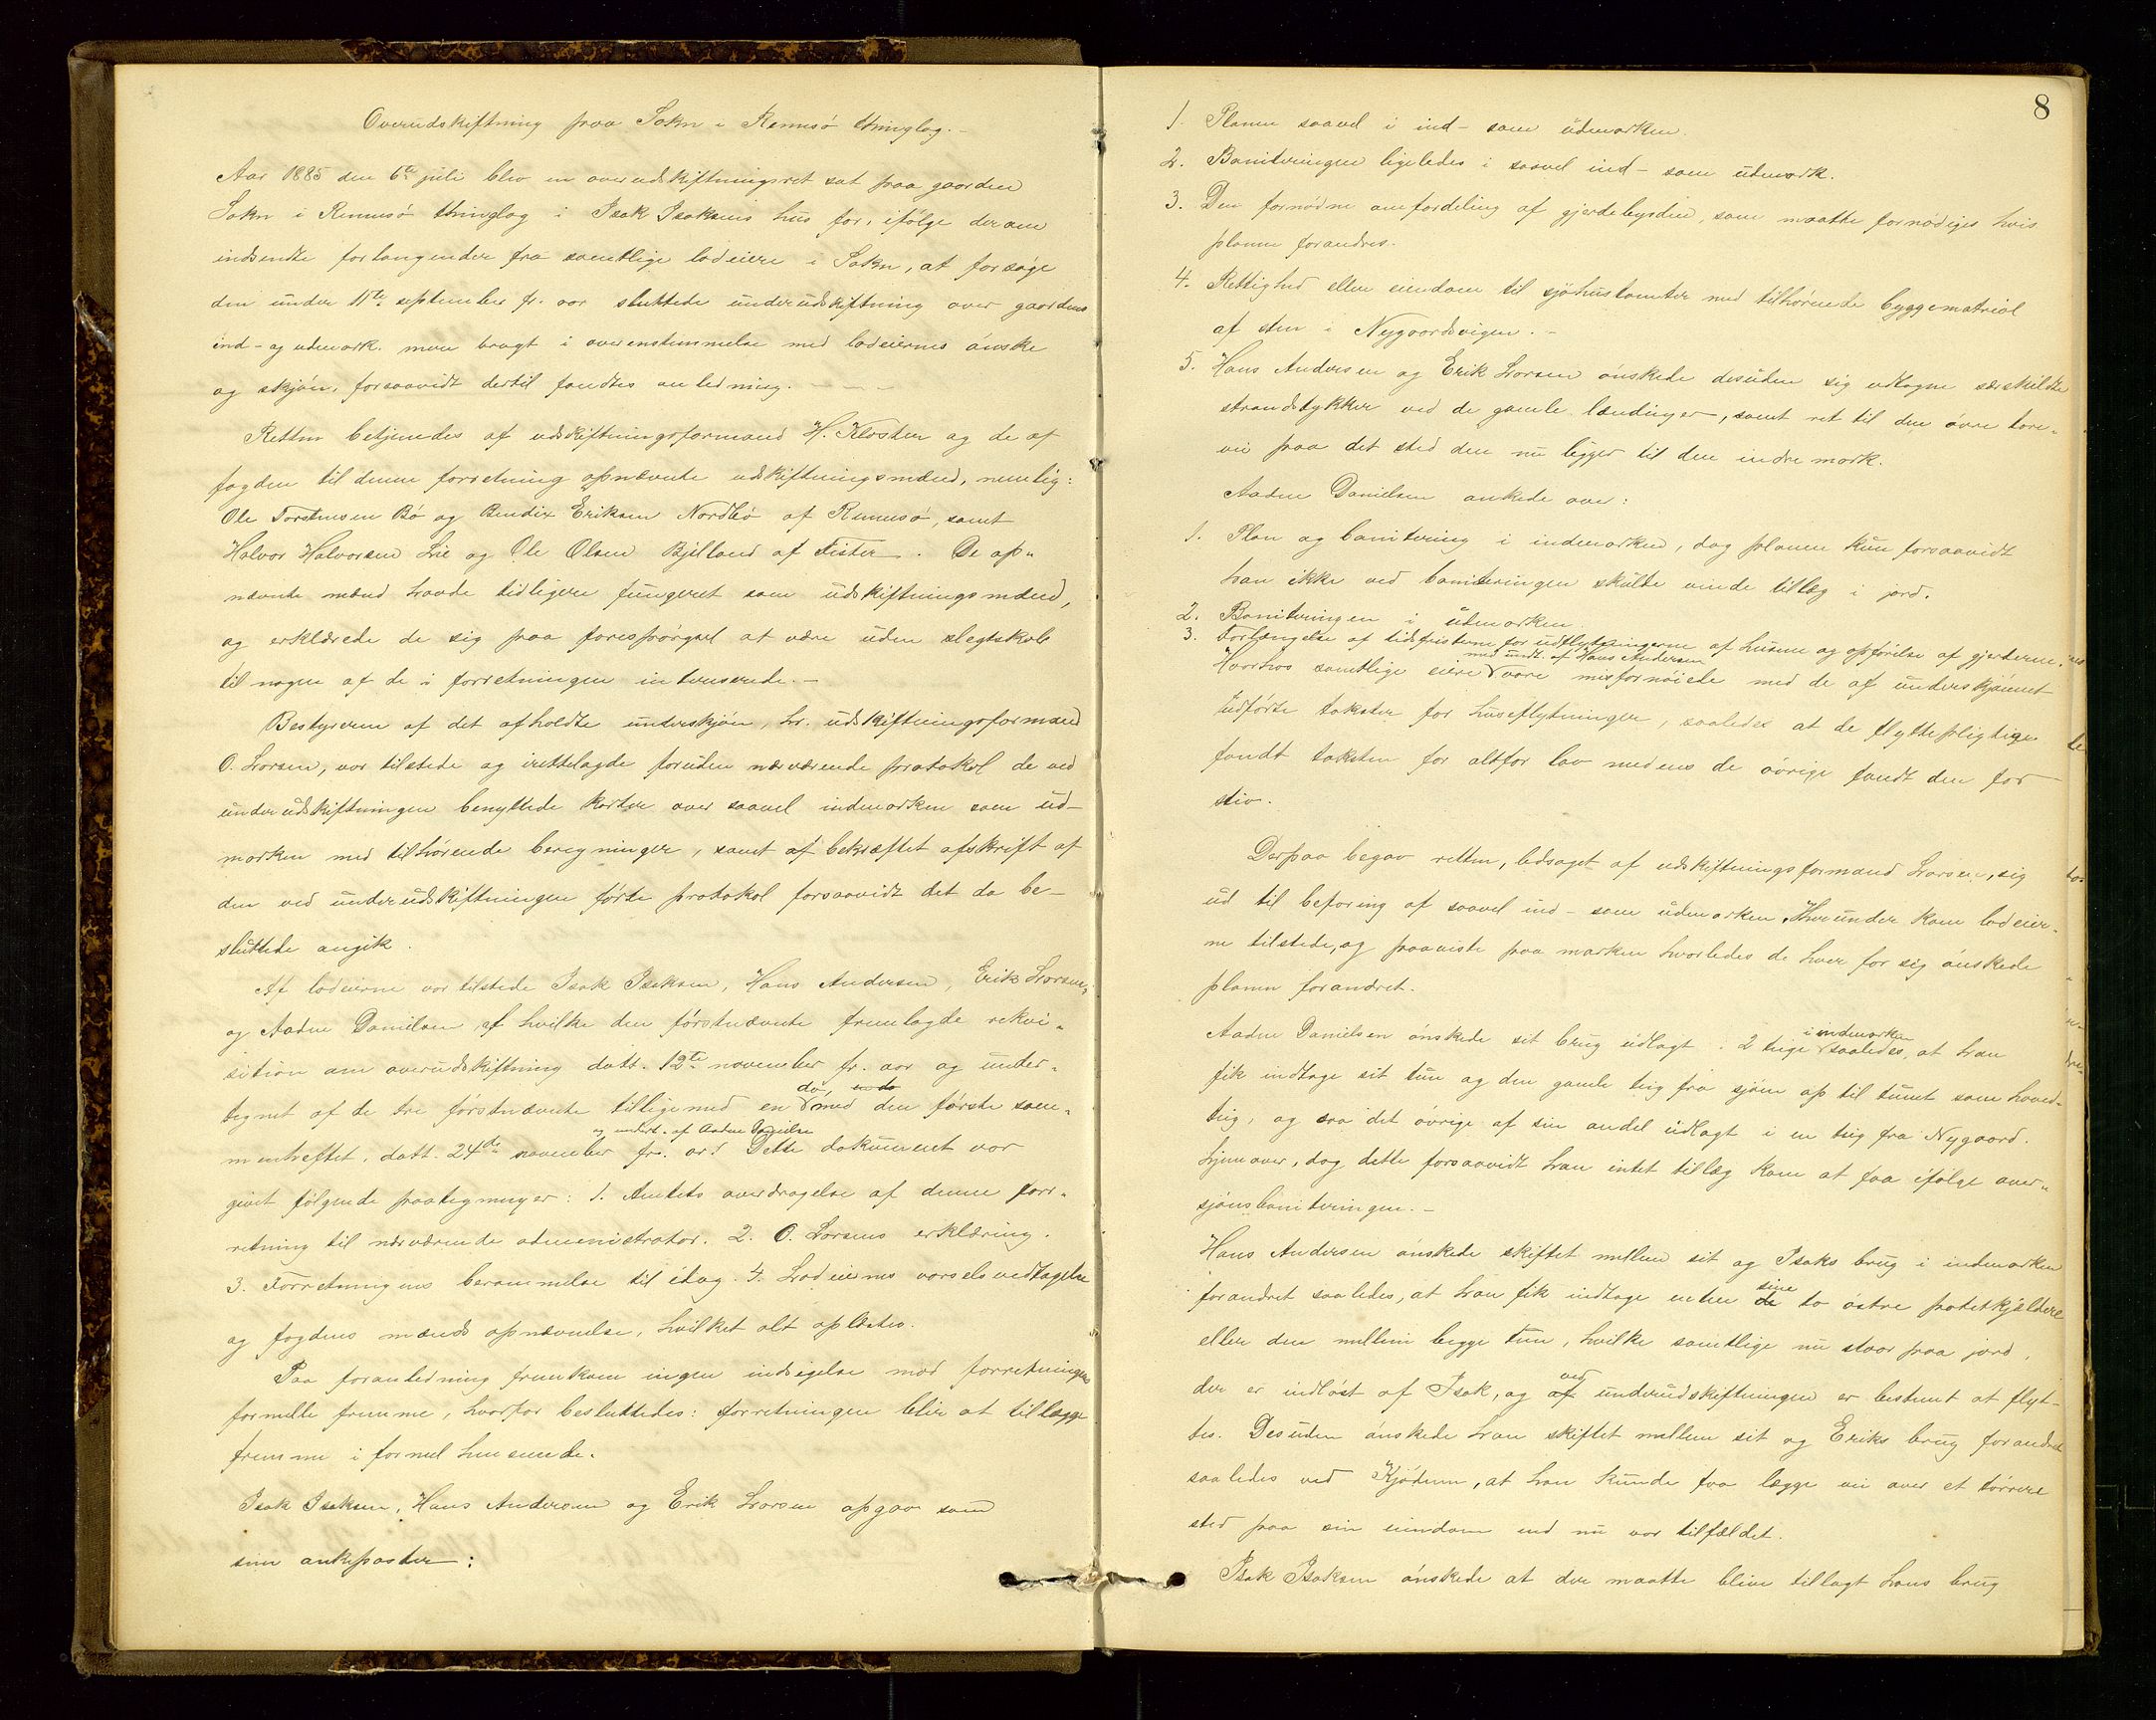 Overudskiftning paa Sokn i Rennesö thinglag.-
Aar 1885 den 6te juli blev en overudskiftningsret sat paa gaarden
Sokn i Rennesö thinglag i Isak Isaksens hus for, ifölge derom
indsendte forlangender fra samtlige lodeiere i Sokn, at forsöge
den under 11te september fr. aar sluttede underudskiftning over gaardens
ind- og udmark mere bragt i overensstemmelse med lodeiernes önske
og skjön, forsaavidt dertil fandtes anledning.
Retten betjentes af udskiftningsformand H. Kloster og de af
fogden til denne forretning opnævnte udskiftningsmænd, nemlig:
Ole Torstensen Bö og Bendix Eriksen Nordbö af Rennesö, samt
Halvor Halvorsen Lie og Ole Olsen Bjelland af Fister. De op-
nævnte mænd havde tidligere fungeret som udskiftningsmænd,
og erklærede de sig paa forespörgsel at være uden slegtskab
til nogen af de i forretningen interesserede.-
Bestyreren af det afholdte underskjön, hr. udskiftningsformand
O. Larsen, var tilstede og irettelagde foruden nærværende protokol de ved
underudskiftningen benyttede karter over saavel indmarken som ud-
marken med tilhörende beregninger, samt af bekræftet afskrift af
den ved underudskiftningen förte protokol forsaavidt det da be-
sluttede angik.
Af lodeierne var tilstede Isak Isaksen, Hans Andersen, Erik Larsen,
og Aadne Danielsen, af hvilke den förstnævnte fremlagde rekvi-
sition om overudskiftning datt. 12te november fr. aar og under-
tegnet af de tre förstnævnte tilligemed en do, med den förste sam-
menheftet, datt. 24de november fr. ar. og undert. af Aadne Danielsen Dette dokument var
givet fölgende paategninger: 1. Amtets overdragelse af denne forr-
retning til nærværende administrator. 2. O. Larsens erklæring.
3. Forretningens berammelse til idag. 4. Lodeiernes varselsvedtagelse
og fogdens mænds opnævnelse, hvilket alt oplæstes.
Paa foranledning fremkom ingen indsigelse mod forretningens
formelle fremme, hvorfor besluttedes: forretningen blir at tillægge
fremme i formel henseende.
Isak Isaksen, Hans Andersen og Erik Larsen opgav som
sine ankeposter:
8
1. Planen saavel i ind- som udmarken.
2. Boniteringen ligeledes i saavel ind- som udmark.
3. Den fornödne omfordeling af gjerdebyrden, som maatte fornödiges hvis
planen forandres.
4. Rettighed eller eiendom til sjöhustomter med tilhörende byggematriel
af sten i Nygaardsvigen.-
5. Hans Andersen og Erik Larsen önskede desuden sig udtagne særskildte
strandstykker ved de gamle lændinger, samt ret til den övre tare-
vei paa det sted den nu ligger til den indre mark.
Aadne Danielsen ankede over:
1. Plan og bonitering i indmarken, dog planen kun forsaavidt
han ikke ved boniteringen skulde vinde tillæg i jord.
2. Boniteringen i udmarken.
3. Forlængelse af tidsfristerne for udflytningerne af husene og opförelse af gjerderne.
Hvorhos samtlige eiere med undt. af Hans Andersen vare misfornöiede med de af underskjönnet
udförte takster for huseflytninger, saaledes at de flyttepligtige
fandt taksten for altfor lav medens de övrige fandt den for
stiv.
Derpaa begav retten, ledsaget af udskiftningsformand Larsen, sig
ud til befaring af saavel ind- som udmarken. Herunder kom lodeier-
ne tilstede, og paaviste paa marken hvorledes de hver for sig önskede
planen forandret.
Aadne Danielsen önskede sit brug udlagt i 2 teige i indmarken saaledes, at han
fik indtage sit tun og den gamle teig fra sjöen op til tunet som hoved-
teig, og saa det övrige af sin andel udlagt i en teig fra Nygaard.
hjemover, dog dette forsaavidt han intet tillæg kom at faa ifölge over-
sjönsboniteringen.-
Hans Andersen önskede skiftet mellem sit og Isaks brug i indmarken
forandret saaledes, at han fik indtage enten de sine to östre potetkjældere
eller den mellem begge tun, hvilke samtlige nu staar paa jord,
der er indlöst af Isak, og af ved underudskiftningen er bestemt at flyt-
tes. Desuden önskede han skiftet mellem sit og Eriks brug forandret
saaledes ved Kjödnen, at han kunde faa lægge vei over et törrere
sted paa sin eiendom end nu var tilfældet.
Isak Isaksen önskede at der maatte blive tillagt hans brug